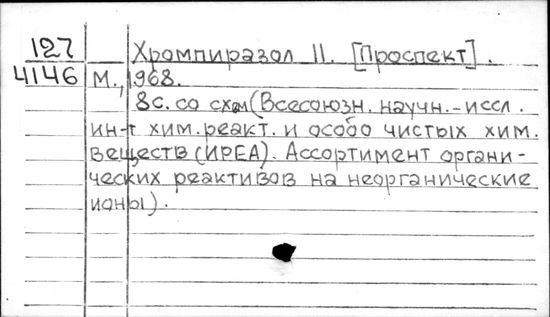 127
4146
Хромпиразол II. [Проспект].
М., 1968.
8с. со схем (Всесоюзн. научн.-иссл.
ин-т хим. реакт. и особо чистых хим.
веществ (ИРЕА). Ассортимент органи-
ческих реактивов на неорганические
ионы).